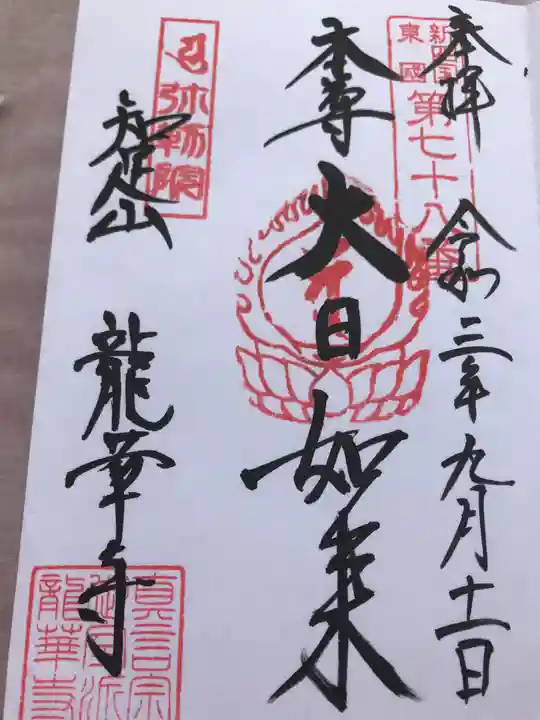 奉拝
令和三年九月十二日
新四国
東國
第七十八番
本尊
大日如来
弥勒院
龍華寺
真言宗
龍華寺